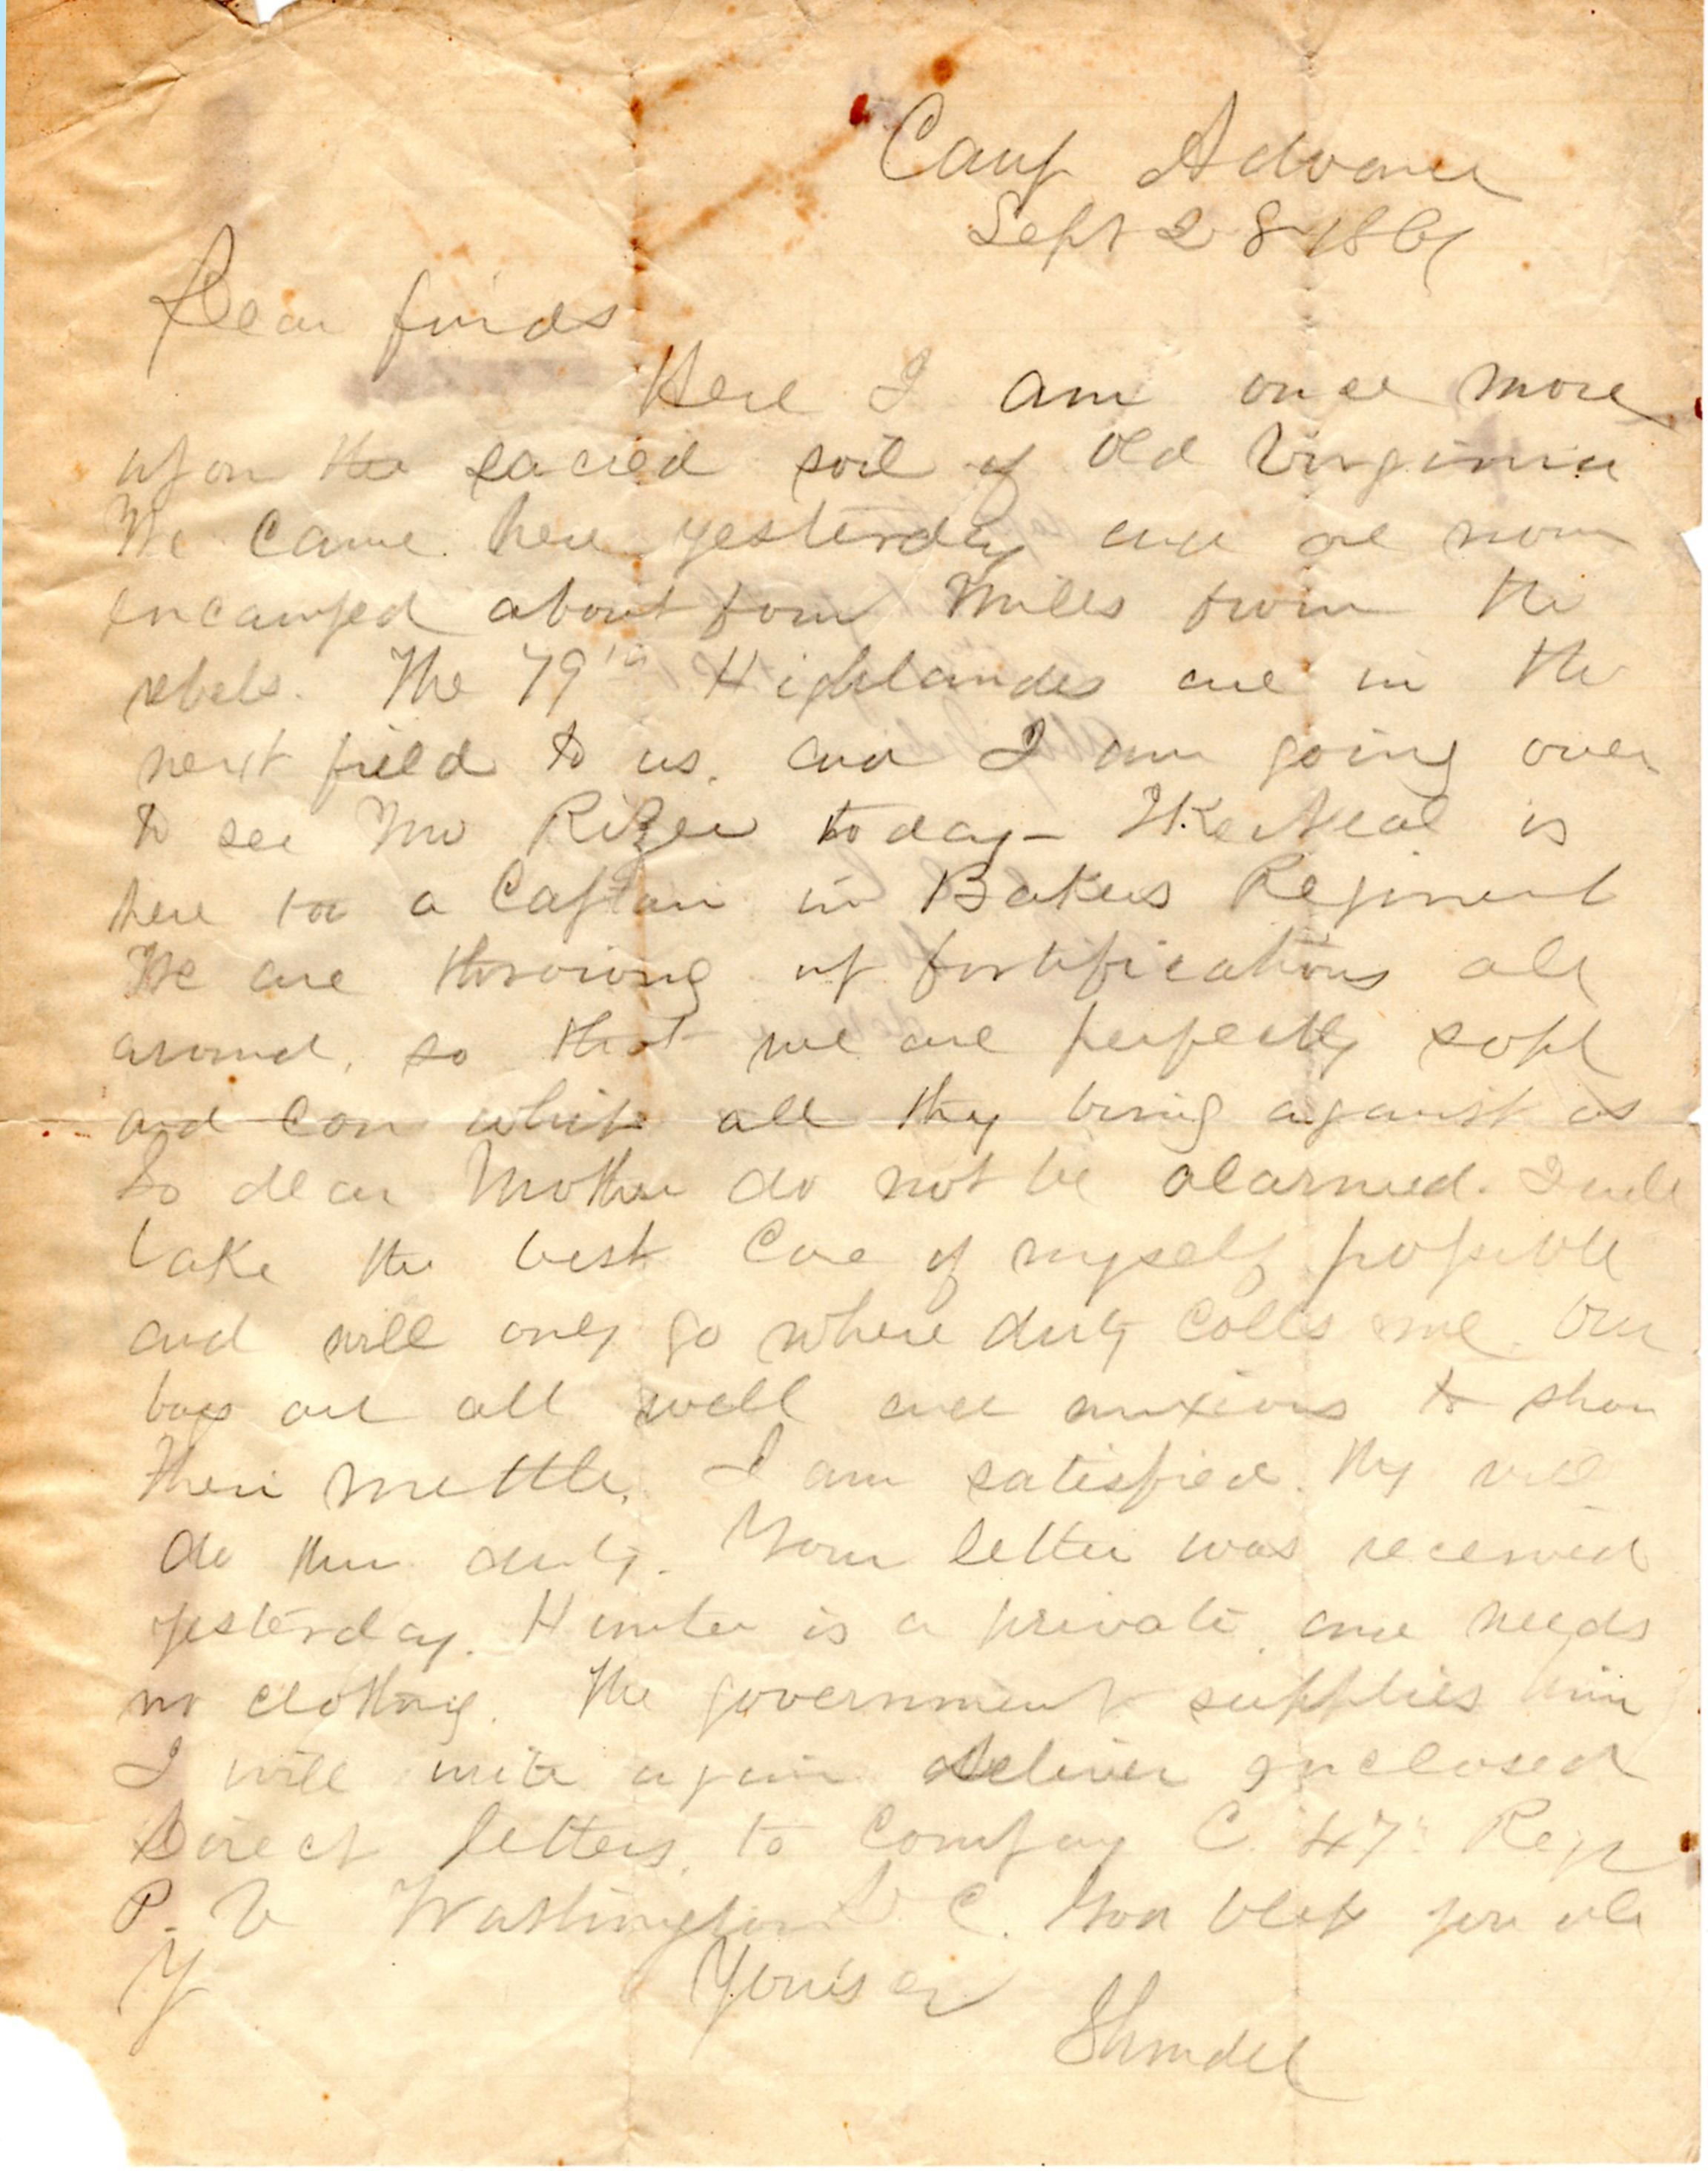 Camp Advance
Sept 28 1861
Dear friends
Here I am once more
upon the sacred soil of Old Virginia
We came here yesterday and are now
encamped about four miles from the
rebels. The 79th Highlanders are in the
next field to us, and I am going over
to see Mr Rizer today - Ike Neal is
here too a Captain in Bakers Regiment
We are throwing up fortifications all
around, so that we are perfectly safe
and can whip all they bring against us
So dear Mother do not be alarmed. I will
take the best care of myself possible
and will only go where duty calls me. Our
boys are all well and anxious to show
their mettle. I am satisfied they will
do their duty. Your letter was received
yesterday. Hunter is a private and needs
no clothing. The government supplies him
I will write again deliver enclosed
Direct letters to Company C. 47th Regt
P. V Washington D C. God bless you all
Y Yours
Shindel